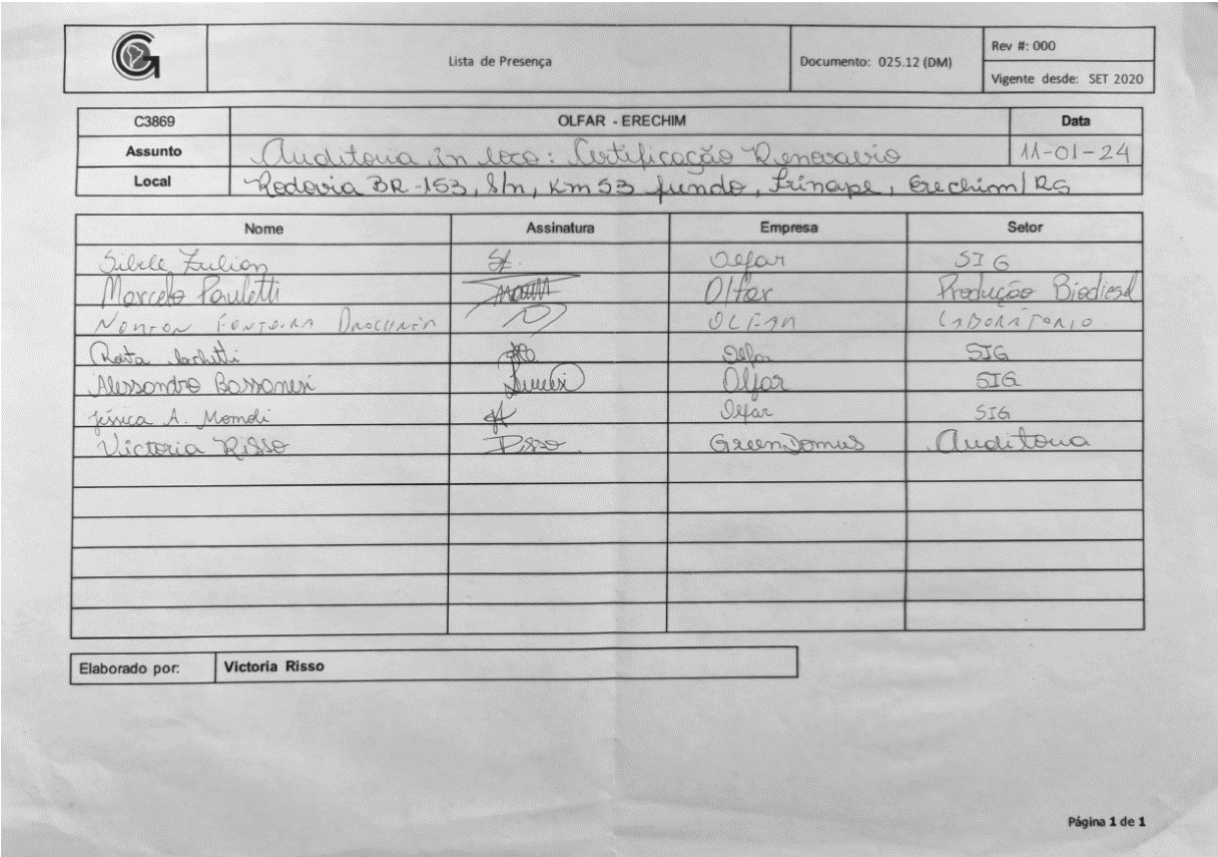 Lista de Presença Documento: 025.12 (DM) Rev #: 000
Vigente desde: SET 2020
C3869 OLFAR - ERECHIM Data
Assunto Auditoria in loco: Certificação Renovabio 11-01-24
Local Rodovia BR-153, S/n, Km 53 fundo, Frinape, Erechim/RS
Nome Assinatura Empresa Setor
Sibele Zulian Olfar SIG
Marcelo Pauletti Olfar Produção Biodiesel
OLFAR LABORATORIO
Olfar SIG
Alessandro Bassanesi Olfar SIG
Jéssica A. Olfar SIG
Victoria Risso Risso GreenDomus Auditoria
Elaborado por: Victoria Risso
Página 1 de 1